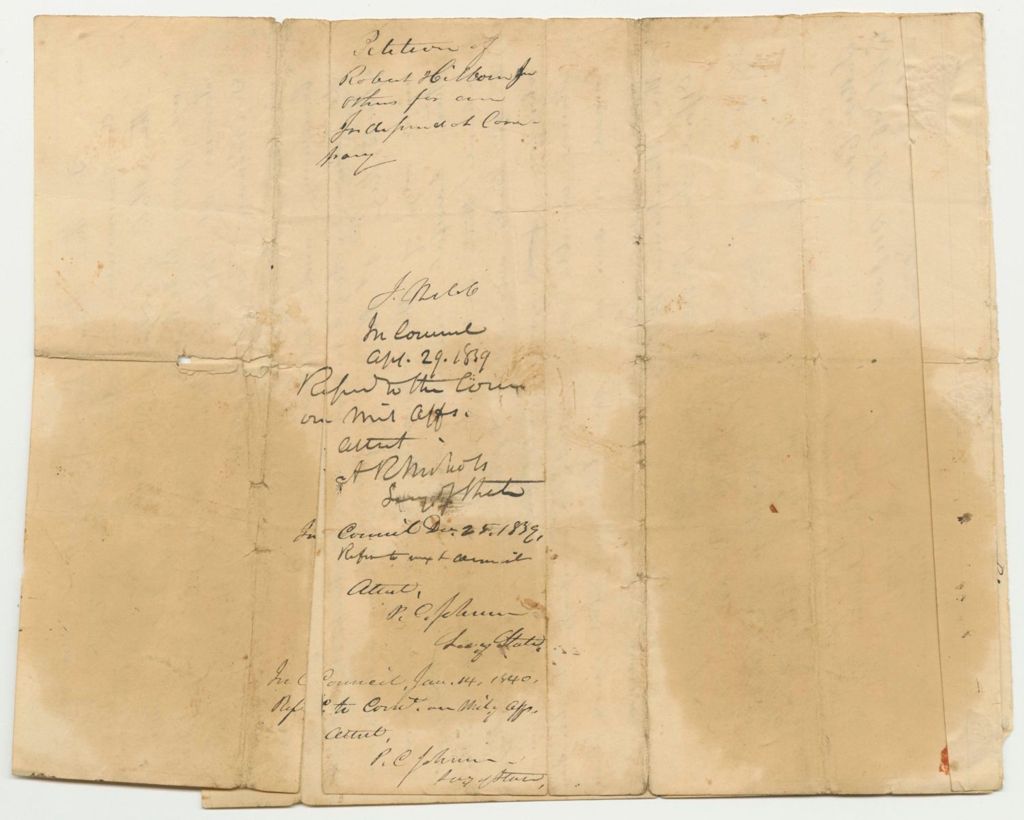 Petition of
Robert Hilborn Jr
others for an
Independent Com-
pany
J. Webb
In Council
Apl. 29. 1839
Referd to the Com
on Mil Affs.
Attest
A R Nichols
Secy of State
In Council Dec. 25. 1839,
Refer to next council
Attest,
P. C. Johnson
Secy of State,
In Council, Jan. 14, 1840,
Refd. to Comt. on Mily Affs.
Attest,
P. C Johnson
Secy of State,